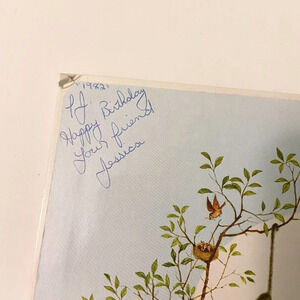 "1982"
P.J.
Happy Birthday
Your friend
Jessica